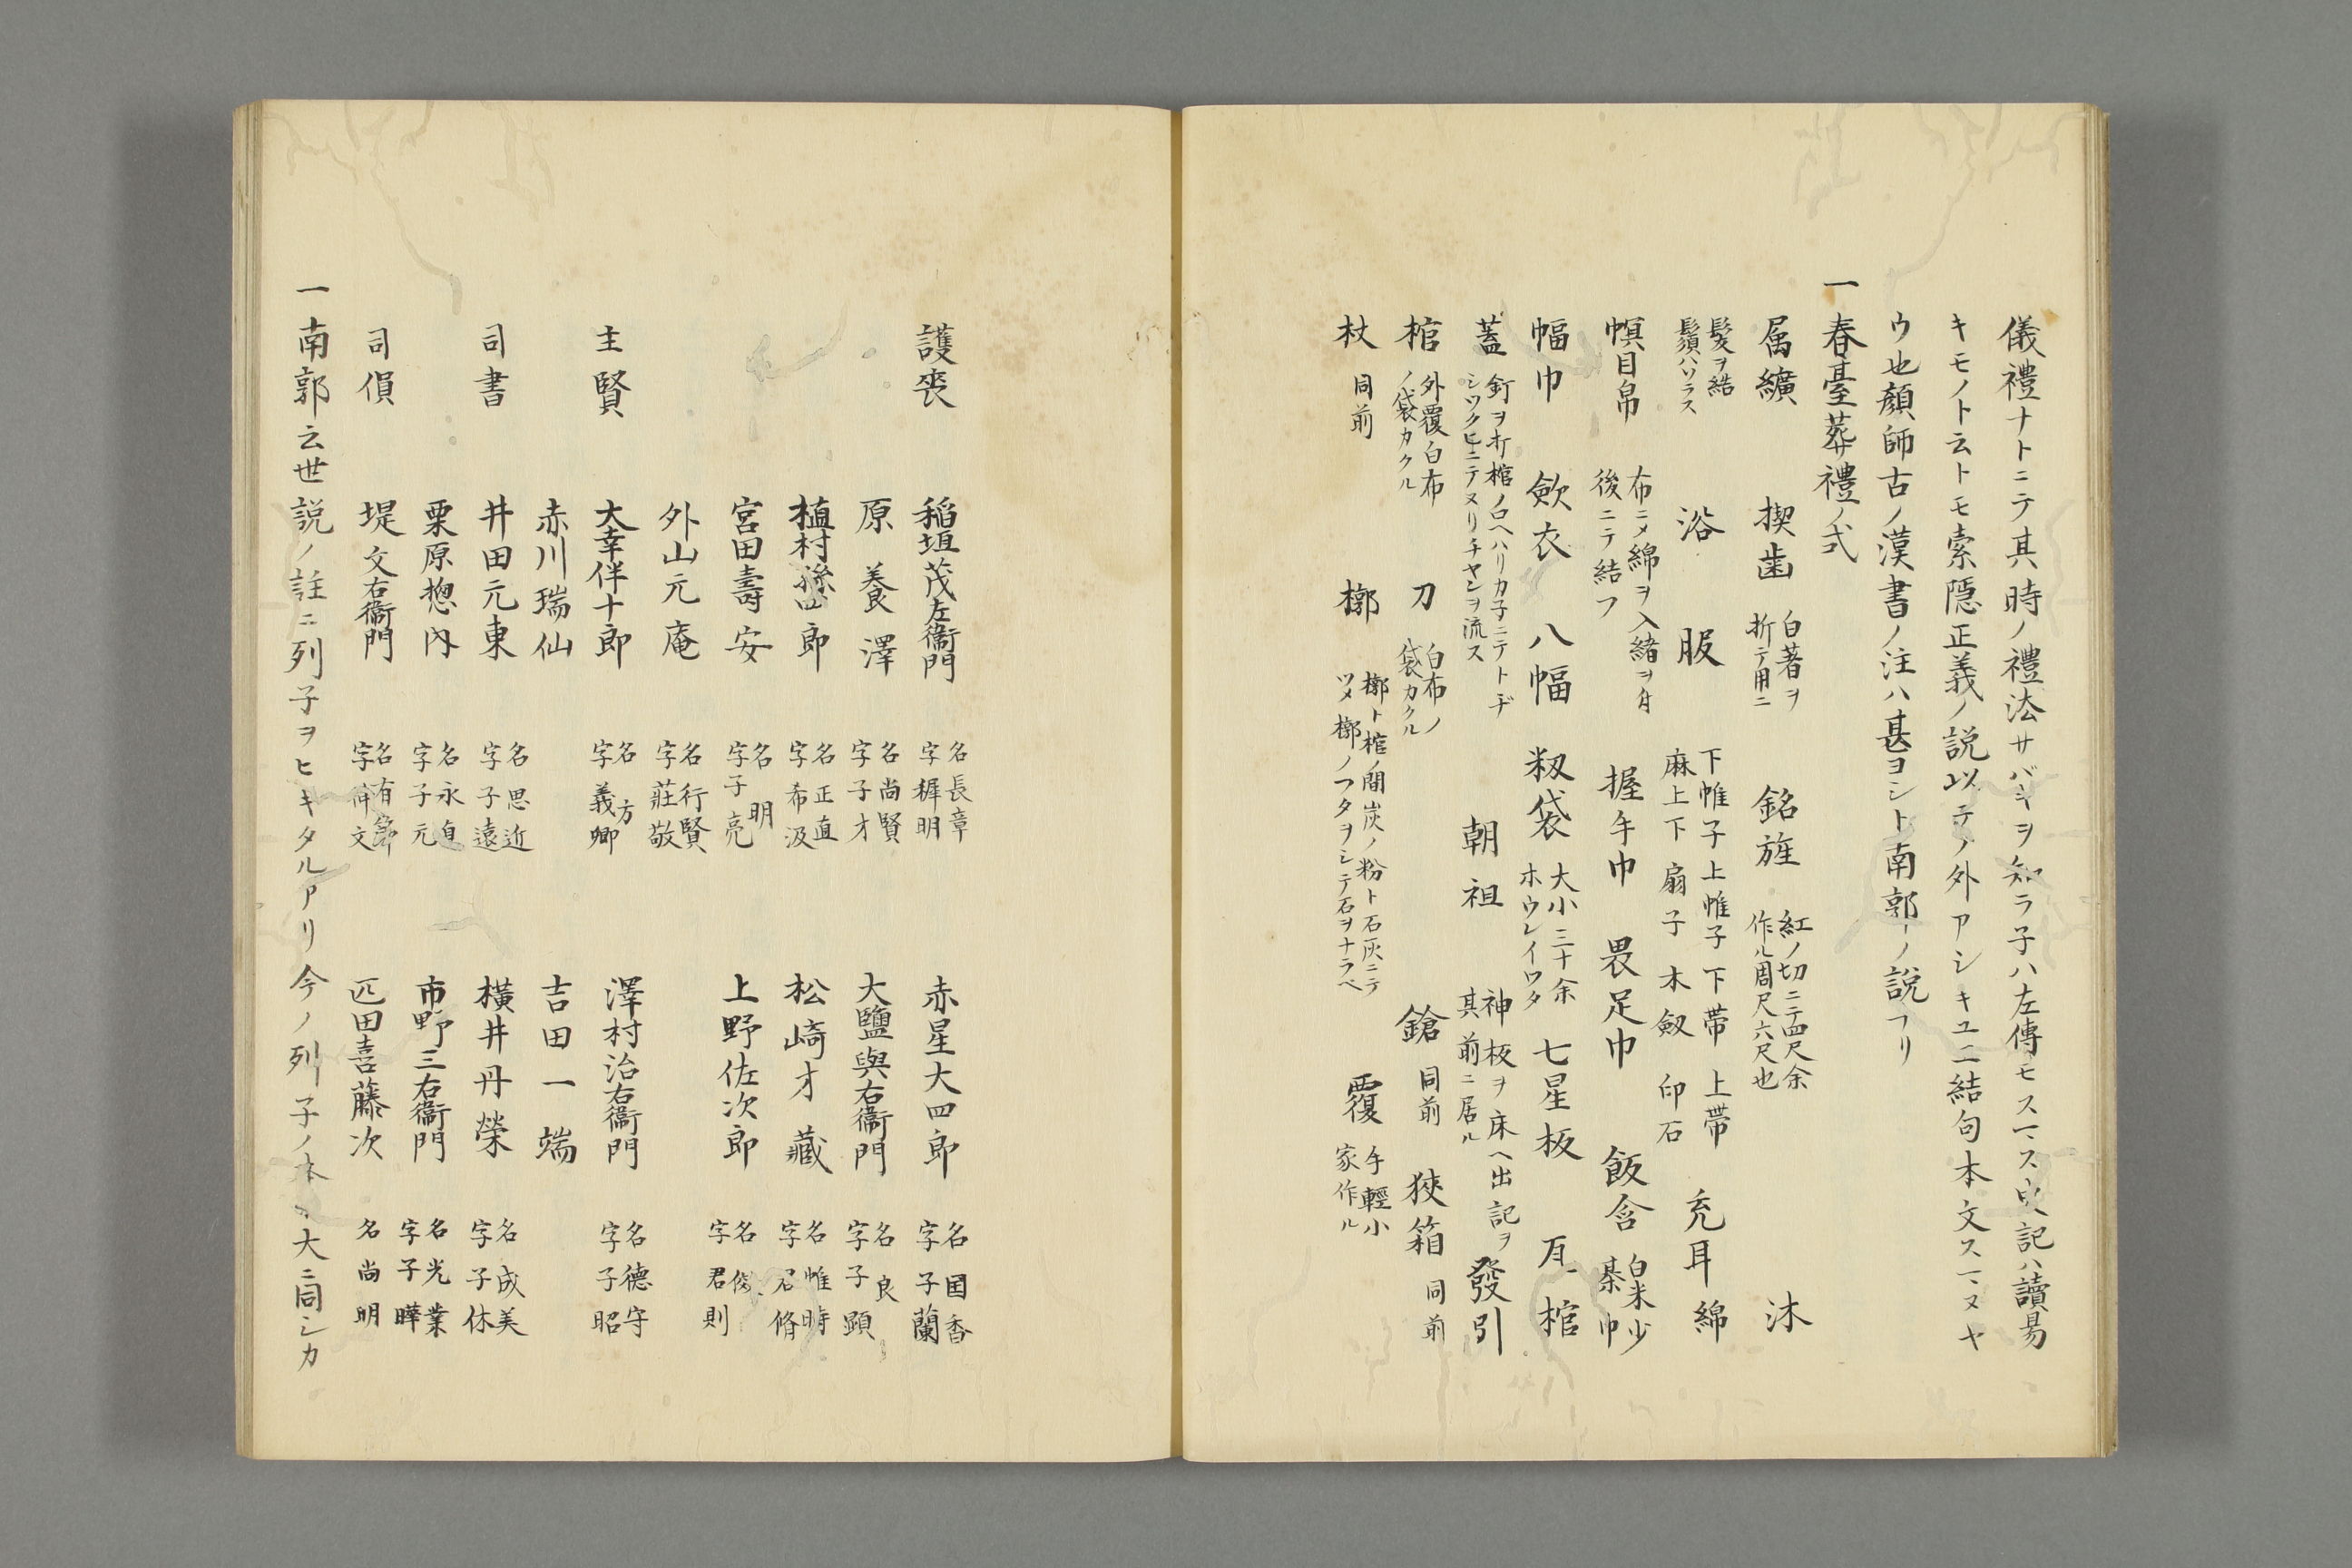 儀禮ナトニテ其時ノ禮法サバキヲ知ラ子ハ左傳モスマヌ史記ハ讀易
キモノト云トモ索隠正義ノ説以テノ外アシキユニ結句本文スマヌヤ
ウ也顔師古ノ漢書ノ注ハ甚ヨシト南郭ノ説ナリ
一春臺葬禮ノ式
属纊 楔歯 白著ヲ折テ用ニ 銘旌 紅ノ切ニテ四尺余作ル周尺六尺也 沐
髪ヲ結鬚ハソラス 浴 服 下帷子上帷子下帯上帯麻上下扇子木劔印石 充耳綿
幎目帛 布ニメ綿ヲ入緒ヲ付後ニテ結フ 握手巾 畏足巾 飯含 白米少綦巾
幅巾 歛衣 八幅 籾袋 大小三十余ホウレイワタ 七星板 瓦棺
蓋 釘ヲ打棺ノ白ヘハリカ子ニテトヂシツクヒニテヌリチヤンヲ流ス 朝祖 神板ヲ床ヘ出記ヲ其前ニ居ル 發引
棺 外覆白布ノ袋カクル 刀 白布ノ袋カクル 鎗 同前 狹箱 同前
杖 同前 槨 槨ト棺ノ間炭ノ粉ト石灰ニテツメ槨ノフタヲシテ石ヲナラベ 覆 手輕小家作ル
護喪 稲垣茂左衞門 名長章字穉明 赤星大四郎 名国香字子蘭
原養澤 名尚賢字子才 大鹽與右衞門 名良字子顕
植村孫四郎 名正直字希汲 松崎才藏 名惟時字君脩
宮田壽安 名明字子亮 上野佐次郎 名俊字君則
外山元庵 名行賢字莊敬
主賢 大幸伴十郎 名方字義卿 澤村治右衞門 名德守字子昭
赤川瑞仙 吉田一端
司書 井田元東 名思近字子遠 橫井丹榮 名成美字子休
栗原惣内 名永字子元 市野三右衞門 名光業字子曄
司儐 堤文右衞門 名有字文 匹田喜藤次 名尚明
一南郭云世説ノ註ニ列子ヲヒキタルアリ今ノ列子ノ本ト大ニ同シカ